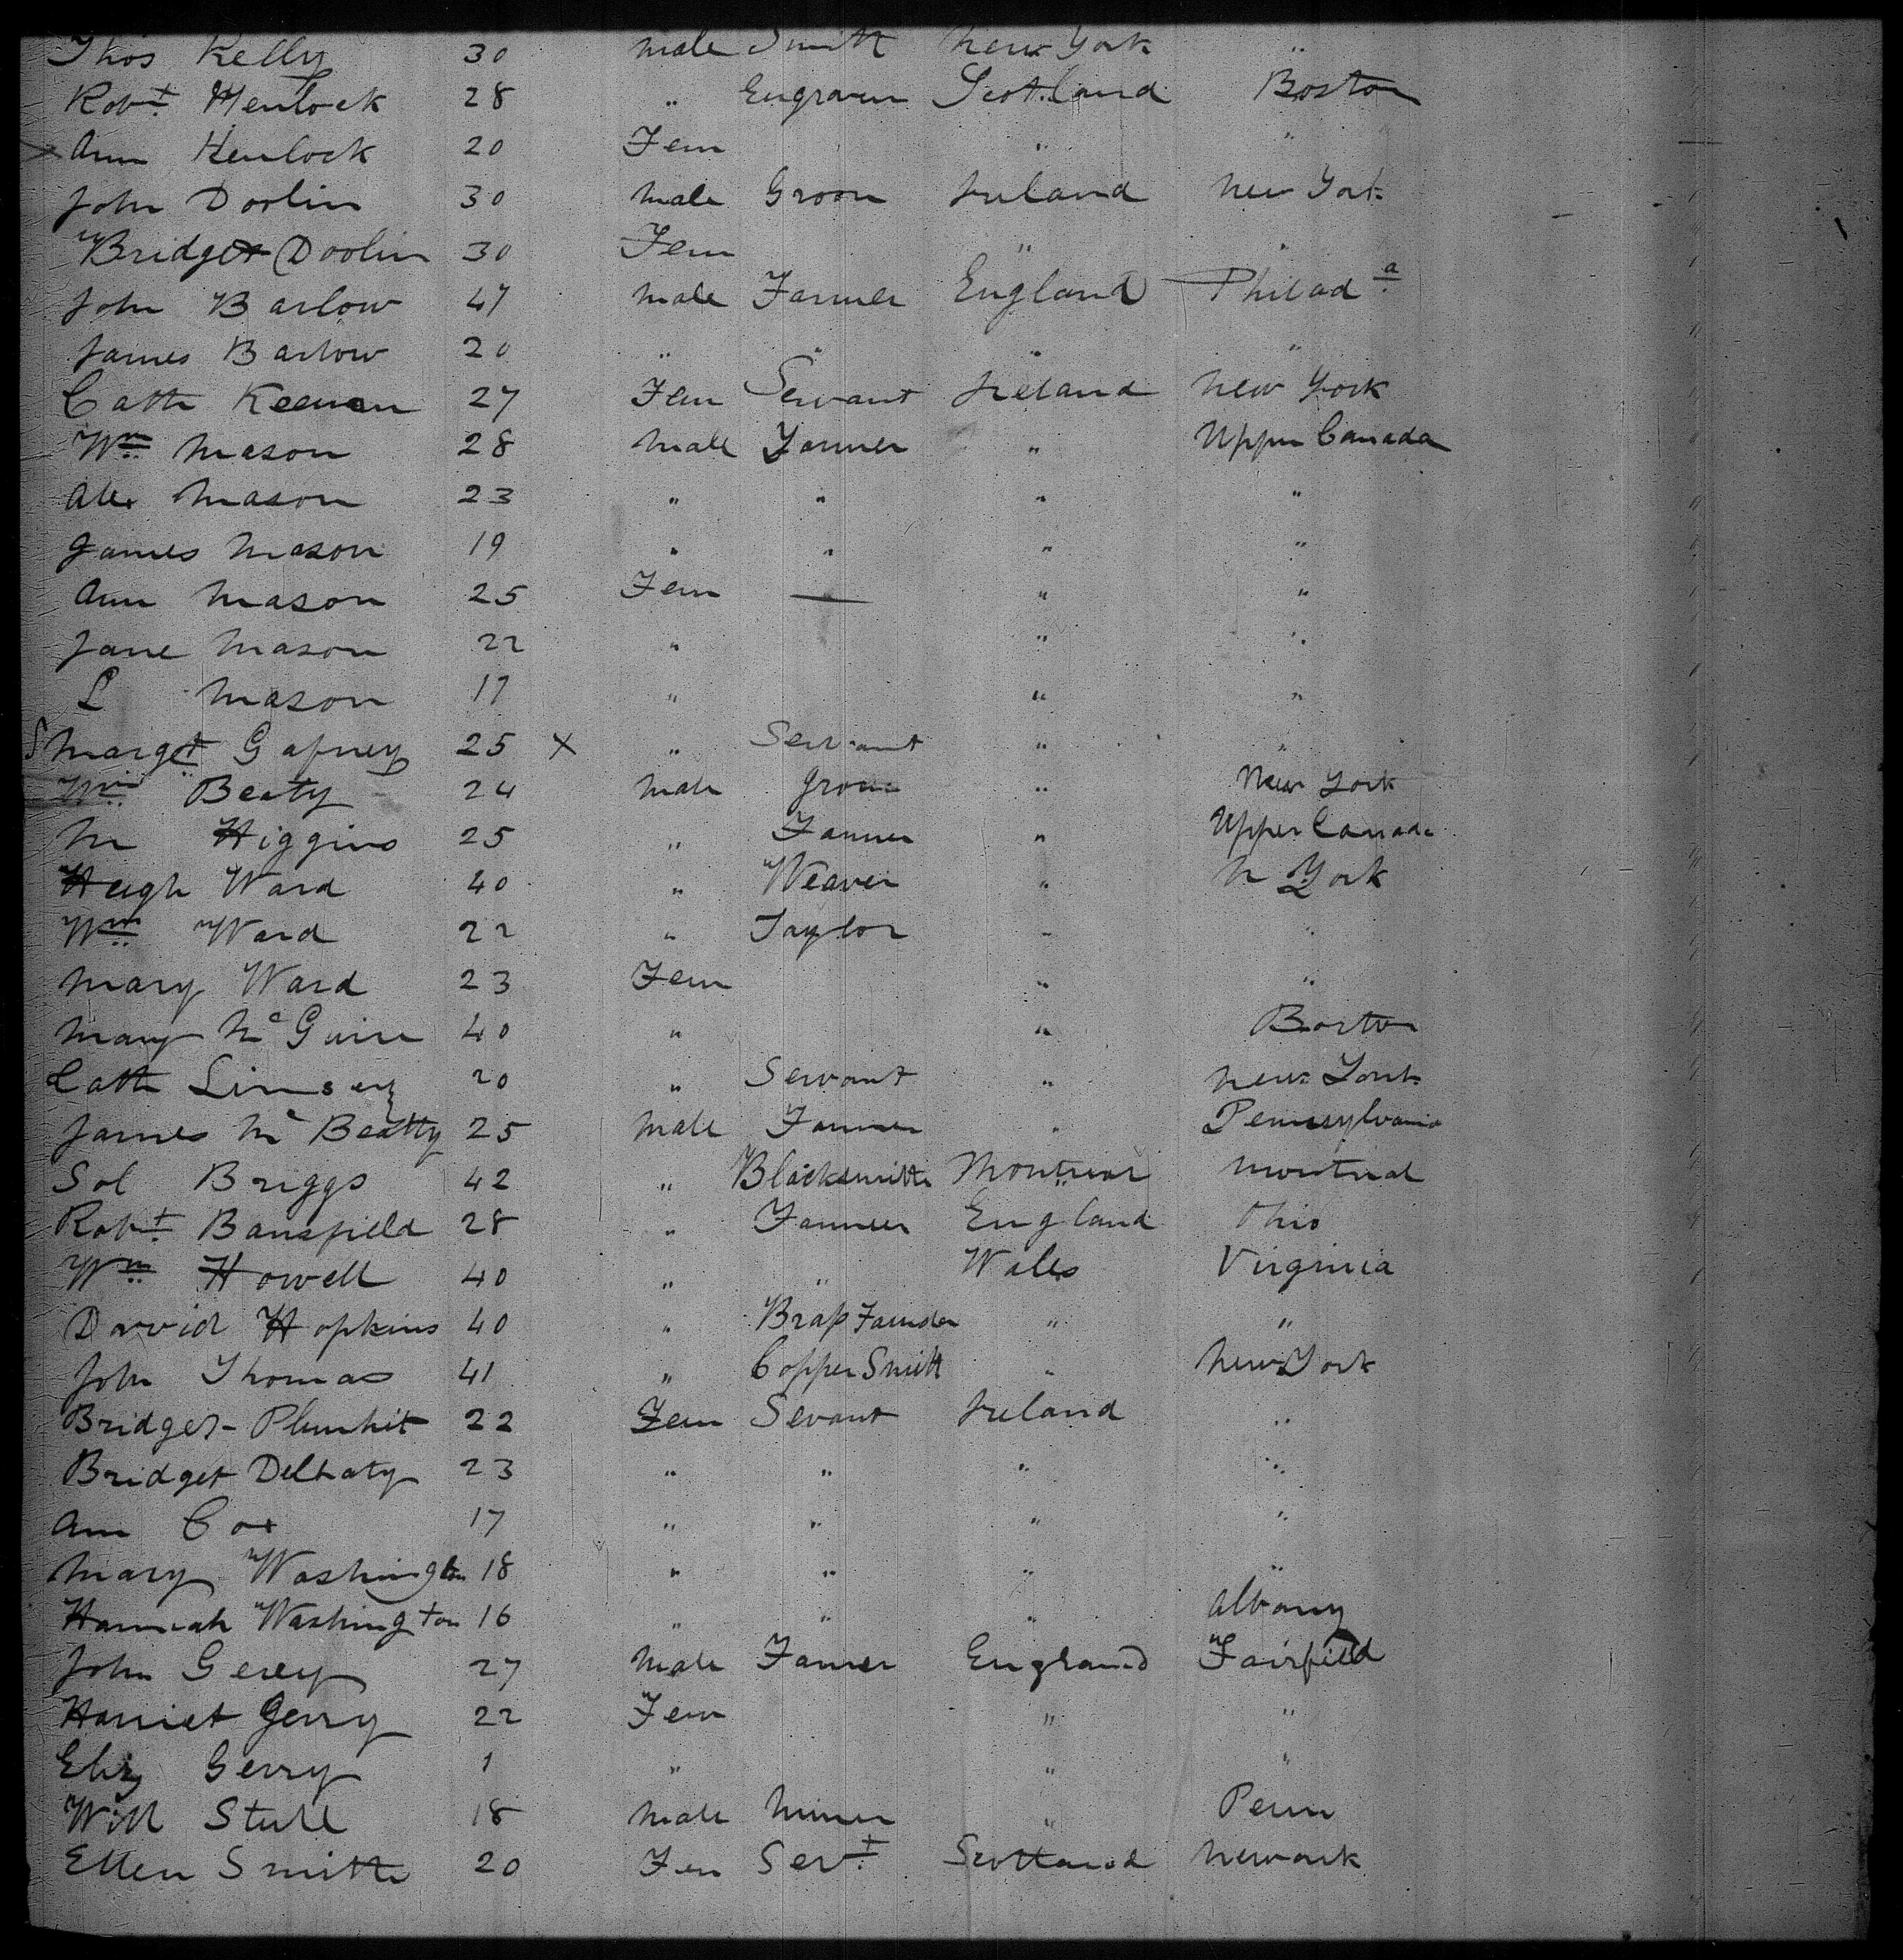 Thos Kelly 30 male Smith New York "
Robt Henlock 28 " Engraver Scotland Boston
Ann Henlock 20 Fem " "
John Doolin 30 male Groom Ireland New York
Bridget Doolin 30 Fem " "
John Barlow 47 male Farmer England Philada
James Barlow 20 " " " "
Cath Keenan 27 Fem Servant Ireland New York
Wm Mason 28 male Farmer " Upper Canada
Alex Mason 23 " " " "
James Mason 19 " " " "
Ann Mason 25 Fem — " "
Jane Mason 22 " " "
L Mason 17 " " "
Marget Gafney 25 X " Servant " "
Wm Beaty 24 male Groom " New York
M Higgins 25 " Farmer " Upper Canada
Hugh Ward 40 " Weaver " N York
Wm Ward 22 " Taylor " "
Mary Ward 23 Fem " "
Mary McGuire 40 " " Boston
Cath Linsey 20 " Servant " New York
James Mc Beatty 25 male Farmer " Pennsylvania
Sol Briggs 42 " Blacksmith Montreal Montreal
Robt Bansfield 28 " Farmer England Ohio
Wm Howell 40 " " Wales Virginia
David Hopkins 40 " Brass Founder " "
John Thomas 41 " Copper Smith " New York
Bridget Plunkit 22 Fem Sevant Ireland "
Bridget Delhaty 23 " " " "
Ann Cox 17 " " " "
Mary Washington 18 " " " "
Hannah Washington 16 " " " Albany
John Gerey 27 male Farmer England Fairfield
Harriet Gerry 22 Fem " "
Eliz Gerry 1 " " "
Will Stull 18 male Miner " Penn
Ellen Smith 20 Fem Servt Scotland Newark